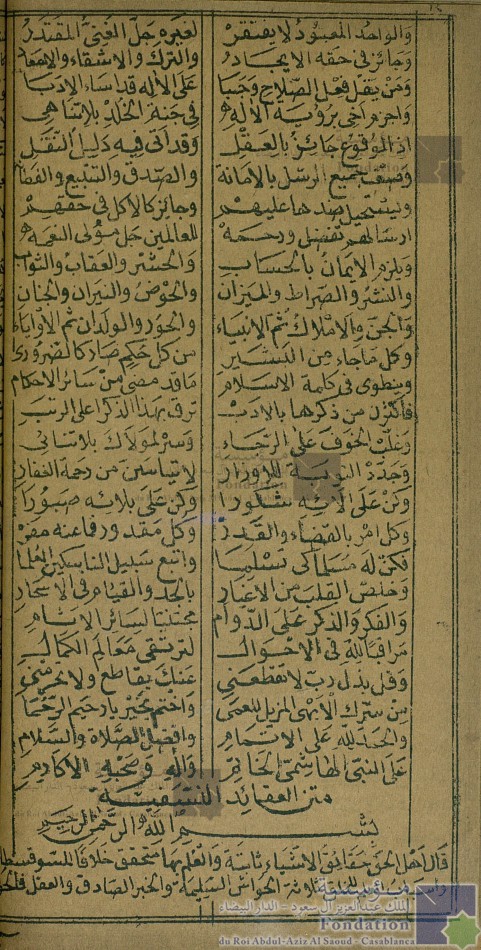 والواحد المعبود لا يفتقر لغيره جل الغني المقتدر
وجائز في حقه الايجاد والترك والاشقاء والاسعاد
ومن يقل فعل الصلاح وجبا على الاله قد اساء الادبا
واجزم اخي برؤية الاله في جنة الخلد بلا تناهي
اذ الوقوع جائز بالعقل وقد اتى فيه دليل النقل
وصف جميع الرسل بالامانة والصدق والتبليغ والفطانة
ويستحيل ضدها عليهم وجائز كالاكل في حقهم
ارسالهم تفضل ورحمة للعالمين جل مولى النعمة
ويلزم الايمان بالحساب والحشر والعقاب والثواب
والنشر والصراط والميزان والحوض والنيران والجنان
والجن والاملاك ثم الانبياء والحور والولدان ثم الاولياء
وكل ما جاء من البشير من كل حكم صار كالضروري
وينطوي في كلمة الاسلام ما قد مضى من سائر الاحكام
فاكثرن من ذكرها بالادب ترق بهذا الذكر اعلى الرتب
وغلب الخوف على الرجاء وسر لمولاك بلا تنائي
وجدد التوبة للاوزار لا تياسن من رحمة الغفار
وكن على الائه شكورا وكن على بلائه صبورا
وكل امر بالقضاء والقدر وكل مقدور فما عنه مفر
فكن له مسلما كي تسلما واتبع سبيل الناسكين العلما
وخلص القلب من الاغيار بالجد والقيام في الاسحار
والفكر والذكر على الدوام مجتنبا لسائر الاثام
مراقبا لله في الاحوال لترتقي معالم الكمال
وقل بذل رب لا تقطعني عنك بقاطع ولا تحرمني
من سرك الابهى المزيل للعمى واختم بخير يا رحيم الرحما
والحمد لله على الاتمام وافضل الصلاة والسلام
على النبي الهاشمي الخاتم وآله وصحبه الاكارم
متن العقائد النسفية
بسم الله الرحمن الرحيم
قال اهل الحق حقائق الاشياء ثابتة والعلم بها متحقق خلافا للسوفسطا
الحواس السليمة والخبر الصادق والعقل
مؤسسة
الملك عبد العزيز آل سعود - الدار البيضاء
Fondation
du Roi Abdul-Aziz Al Saoud - Casablanca